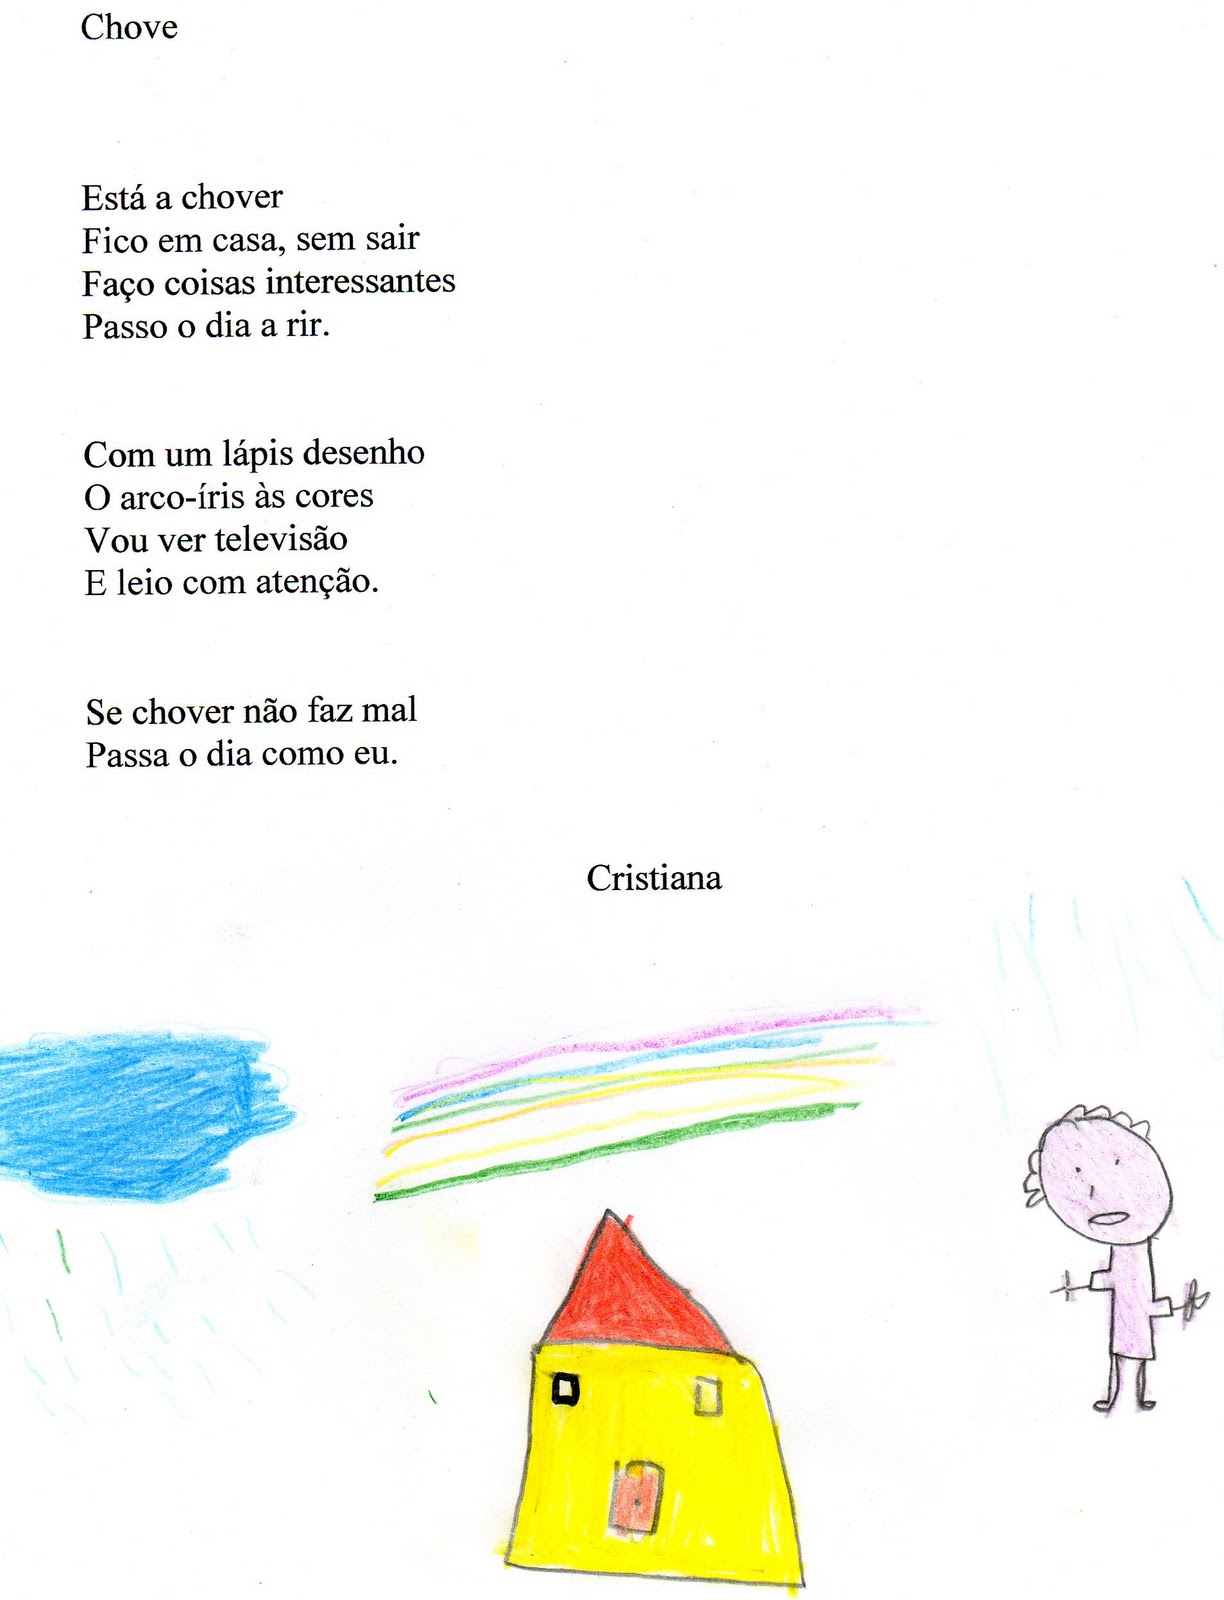 Chove
Está a chover
Fico em casa, sem sair
Faço coisas interessantes
Passo o dia a rir.
Com um lápis desenho
O arco-íris às cores
Vou ver televisão
E leio com atenção.
Se chover não faz mal
Passa o dia como eu.
Cristiana